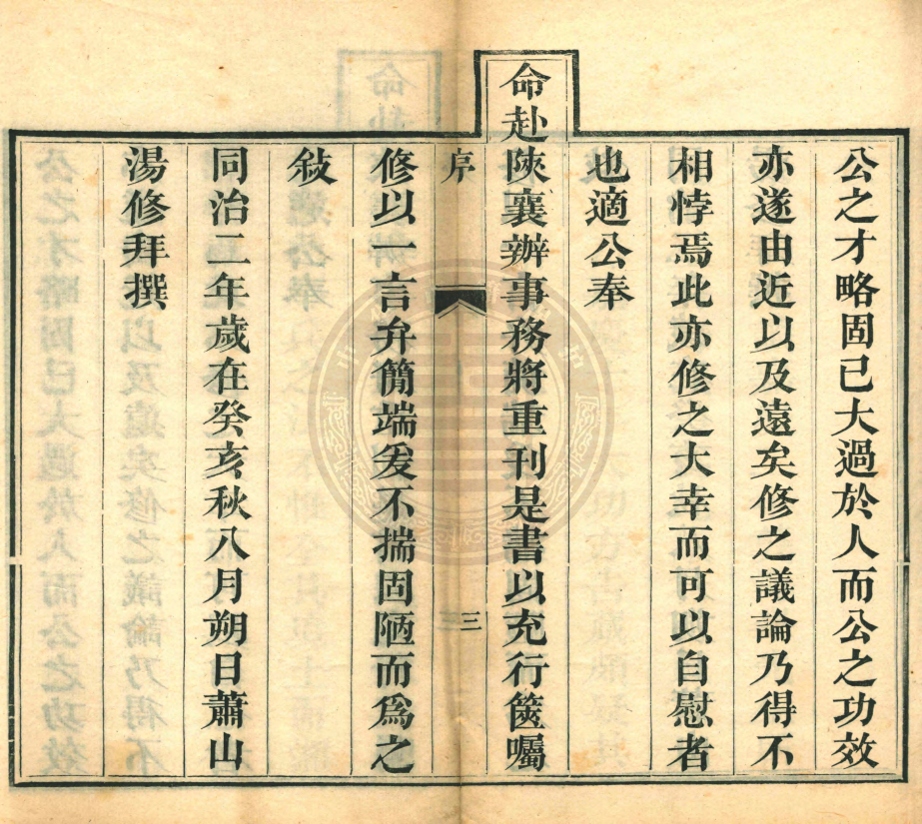 公之才略固已大過於人而公之功效
亦遂由近以及遠矣修之議論乃得不
相悖焉此亦修之大幸而可以自慰者
也適公奉
命赴陝襄辦事務將重刊是書以充行篋囑
序
三
修以一言弁簡端爰不揣固陋而爲之
敍
同治二年歲在癸亥秋八月朔日蕭山
湯修拜撰